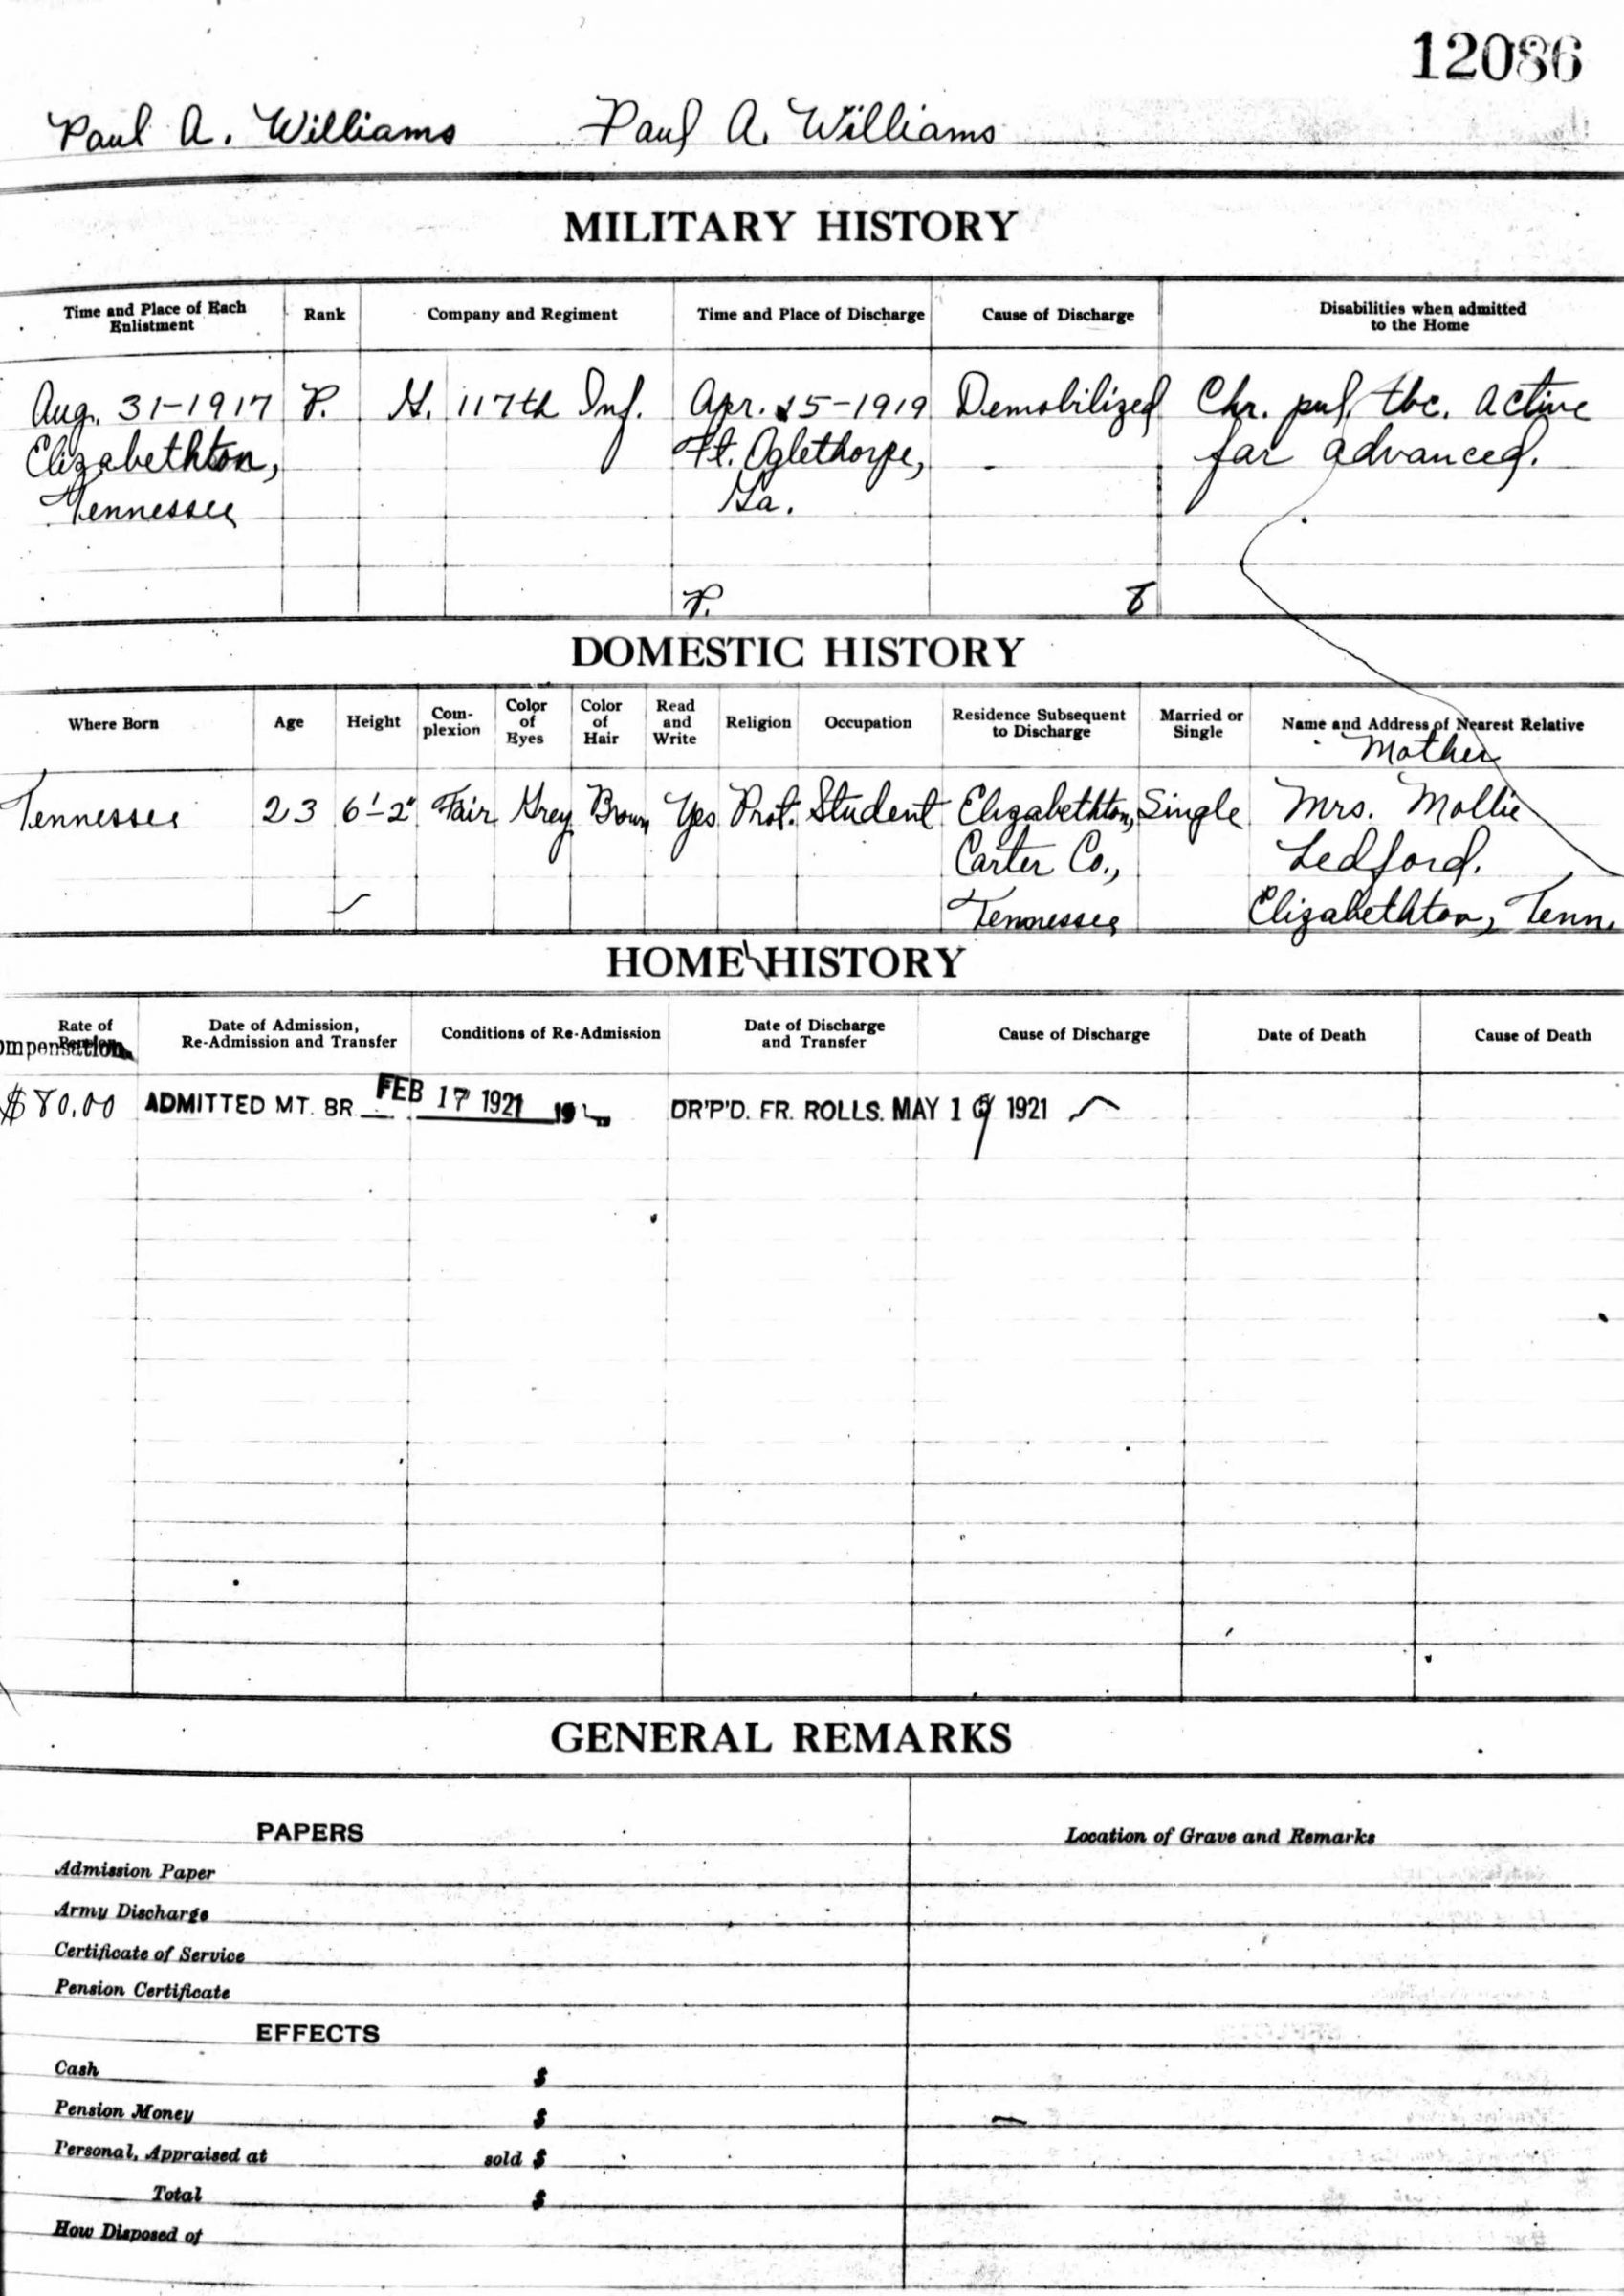 12086
Paul A. Williams Paul A. Williams
MILITARY HISTORY
Time and Place of Each Enlistment Rank Company and Regiment Time and Place of Discharge Cause of Discharge Disabilities when admitted to the Home
Aug. 31-1917 P. H. 117th Inf. Apr. 15-1919 Demobilized Chr. pul. tbc. active
Elizabethton, Ft. Oglethorpe, far advanced.
Tennessee Ga.
P.
DOMESTIC HISTORY
Where Born Age Height Com-plexion Color of Eyes Color of Hair Read and Write Religion Occupation Residence Subsequent to Discharge Married or Single Name and Address of Nearest Relative
Mother
Tennessee 23 6'-2" Fair Grey Brown Yes Prot. Student Elizabethton, Single Mrs. Mollie
Carter Co., Ledford.
Tennessee Elizabethton, Tenn.
HOME HISTORY
Rate of ompensation Date of Admission, Re-Admission and Transfer Conditions of Re-Admission Date of Discharge and Transfer Cause of Discharge Date of Death Cause of Death
$80.00 ADMITTED MT. BR. FEB 17 1921 19 DR'P'D. FR. ROLLS. MAY 19 1921
GENERAL REMARKS
PAPERS Location of Grave and Remarks
Admission Paper
Army Discharge
Certificate of Service
Pension Certificate
EFFECTS
Cash $
Pension Money $
Personal, Appraised at sold $
Total $
How Disposed of